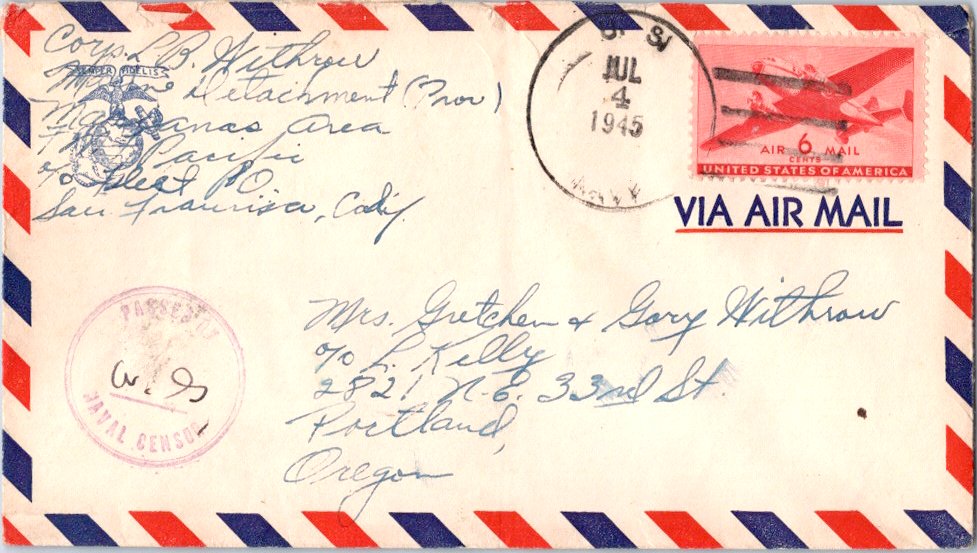 Corp. L B. Withrow
SEMPER FIDELIS
Marine Detachment (Prov)
Marianas Area
Pacific
c/o Fleet PO
San Francisco, Calif.
U. S.
JUL
4
1945
NAVY
AIR 6 MAIL
CENTS
UNITED STATES OF AMERICA
VIA AIR MAIL
PASSED BY
NAVAL CENSOR
Mrs. Gretchen & Gary Withrow
c/o L. Kelly
2821 N.E. 33rd St.
Portland,
Oregon